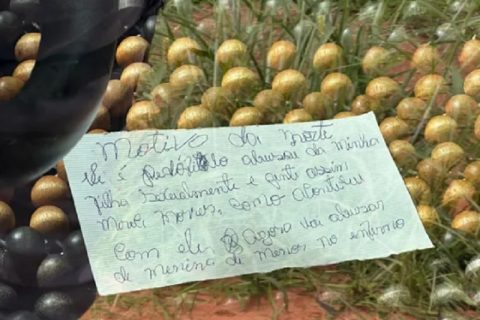 Motivo da morte
ele é pedófilo abusou da minha
filha sexualmente e gente assim
merece morrer, como aconteceu
com ele agora vai abusar
de menina de menor no inferno